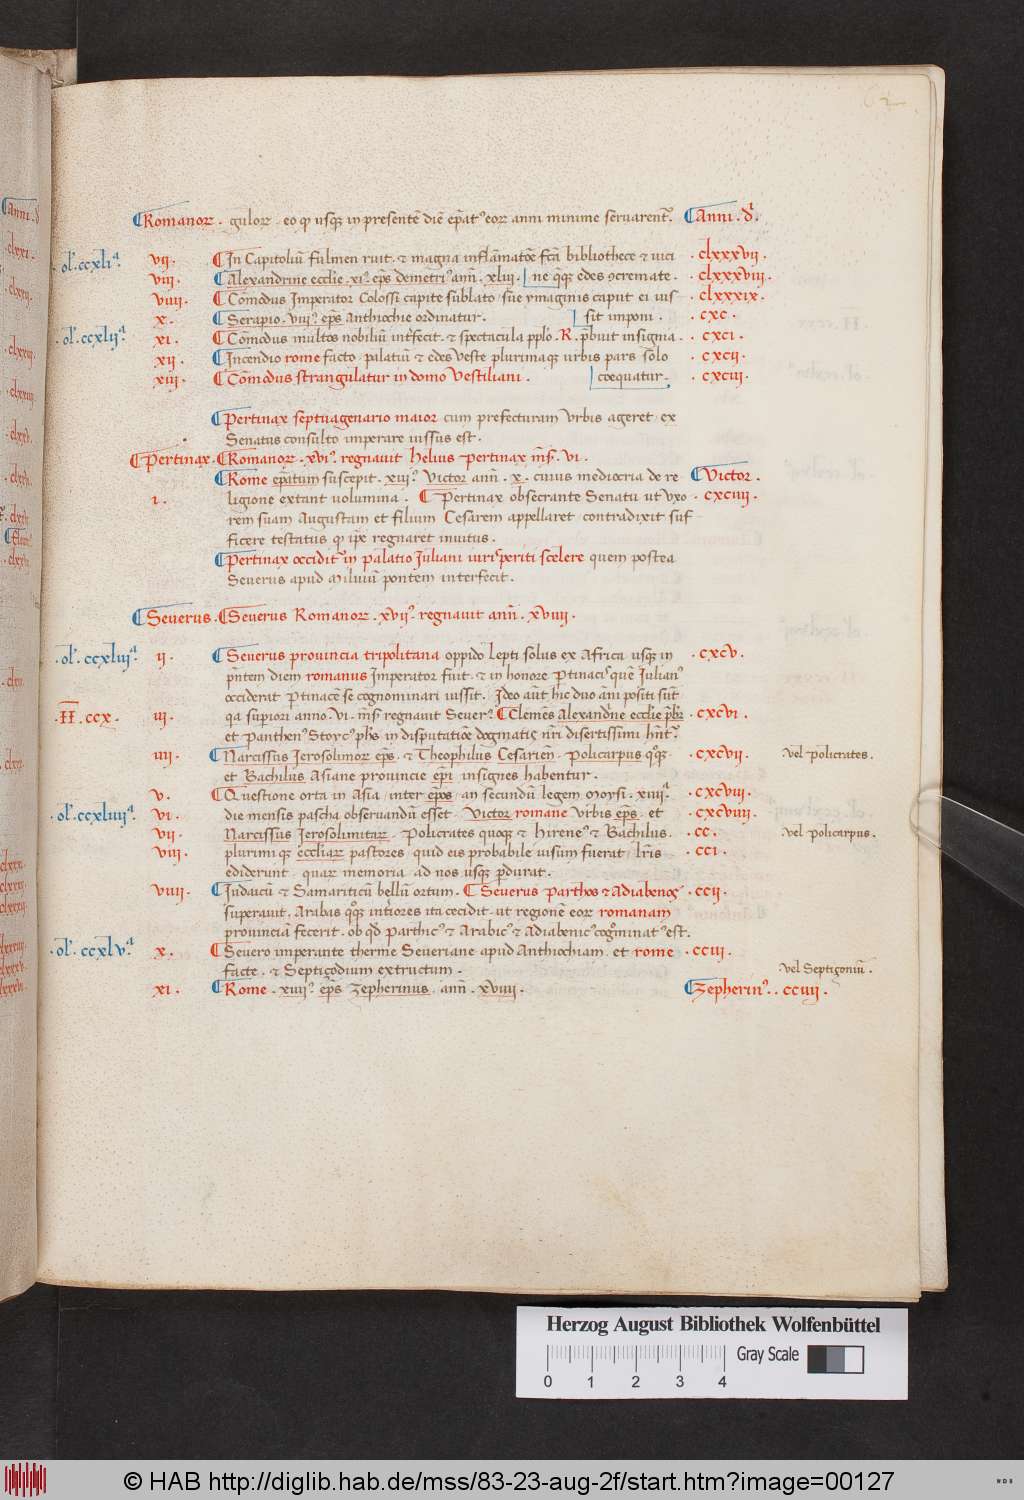 62
Romanoꝝ . guloꝝ . eo ꝙ usqꝫ in presentē diē ep̄at⁹ eoꝝ anni minime seruarent᷑ . Anni . dī .
. ol᷑ . ccxliᵃ . vij . In Capitoliū fulmen ruit . & magna inflāmatōe fc̄a bibliothece & uici . clxxxvij .
viij . Alexandrine ecclie . xi⁹ . ep̄s demetri⁹ ann̄ . xliij . ne q̄qꝫ edes ꝯcremate . . clxxxviij .
viiij . Comōdus Imperator Colossi capite sublato . sue ymaginis caput ei ius . clxxxix .
x . Serapio . viij⁹ . ep̄s Anthiochie ordinatur . sit imponi . . cxc .
. ol᷑ . ccxlijᵃ xi . Comōdus multos nobiliū int̄fecit . & spectacula pplo . R . p̄buit insignia . . cxci .
xij . Incendio rome facto . palatiū & edes veste plurimaqꝫ urbis pars solo . cxcij .
xiij . Comōdus strangulatur in domo Vestiliani . coequatur . . cxciij .
Pertinax septuagenario maior cum prefecturam Vrbis ageret . ex
Senatus consulto imperare iussus est .
Pertinax . Romanoꝝ . xvi⁹ . regnauit Helius Pertinax m̄s . vi .
Rome ep̄atum suscepit . xiij⁹ . Victor ann̄ . x . cuius mediocria de re Victor .
i . ligione extant uolumina . Pertinax obsecrante Senatu ut Vxo . cxciiij .
rem suam Augustam et filium Cesarem appellaret . contradixit suf
ficere testatus ꝙ ip̄e regnaret inuitus .
Pertinax occidit᷑ in palatio Iuliani iurisperiti scelere quem postea
Seuerus apud Miluiū pontem interfecit .
Seuerus . Seuerus Romanoꝝ . xvij⁹ . regnauit ann̄ . xviij .
. ol᷑ . ccxliijᵃ . ij . Seuerus prouincia tripolitana oppido Lepti solus ex Africa usqꝫ in . cxcv .
p̄ntem diem romanus Imperator fuit . & in honore Ptinacis quē Iulian⁹
occiderat Ptinacē se cognominari iussit . Ideo aūt hic duo āni positi sūt
. H̄ . ccx . iij . qa supiori anno . vi . m̄s regnauit Seuer⁹ . Clemēs Alexandrīe ecclie pb̄r . cxcvi .
et Panthen⁹ Stoyc⁹ ph̄s in disputatiōe dogmatis nr̄i disertissimi hn̄t᷑ .
iiij . Narcissus Ierosolimoꝝ ep̄s . & Theophilus Cesariēn . Policarpus qoqꝫ . . cxcvij . vel Policrates .
et Bachilus Asiane prouincie ep̄i insignes habentur .
v . Questione orta in Asia . inter ep̄os . an secundū legem Moysi . xiiijᵃ . . cxcviij .
. ol᷑ . ccxliiijᵃ . vi . die mensis pascha obseruandū esset . Victor romane Vrbis ep̄s . et . cxcviiij .
vij . Narcissus Ierosolimitaꝝ . Policrates quoqꝫ & Hirene⁹ & Bachilus . . cc . vel Policarpus .
viij . plurimi qꝫ eccliaꝝ pastores . quid eis probabile uisum fuerat . lr̄is . cci .
ediderunt . quaꝝ memoria . ad nos usqꝫ pdurat .
viiij . Iudaicū & Samariticū bellū ortum . Seuerus Parthos & Adiabenos . ccij .
superauit . Arabas qoqꝫ int̄iores ita cecidit . ut regionē eoꝝ romanam
prouinciā fecerit . ob qd̄ Parthic⁹ & Arabic⁹ & Adiabenic⁹ cogminat⁹ est .
. ol᷑ . ccxlvᵃ . x . Seuero imperante therme Seueriane apud Anthiochiam . et rome . cciij .
facte . & Septiçodium extructum . vel Septigoniū .
xi . Rome . xiiij⁹ . ep̄s Zepherinus . ann̄ . xviiij . Zepherin⁹ . . cciiij .
Herzog August Bibliothek Wolfenbüttel
Gray Scale
0 1 2 3 4
© HAB http://diglib.hab.de/mss/83-23-aug-2f/start.htm?image=00127